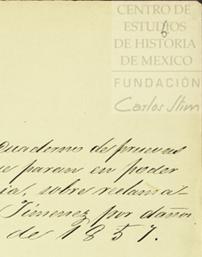 CENTRO DE
ESTUDIOS
DE HISTORIA
DE MEXICO
FUNDACIÓN
Carlos Slim
6
cuadernos de pruevas
que paran en poder
sobre reclama-
Jimenez por daños
de 1857.